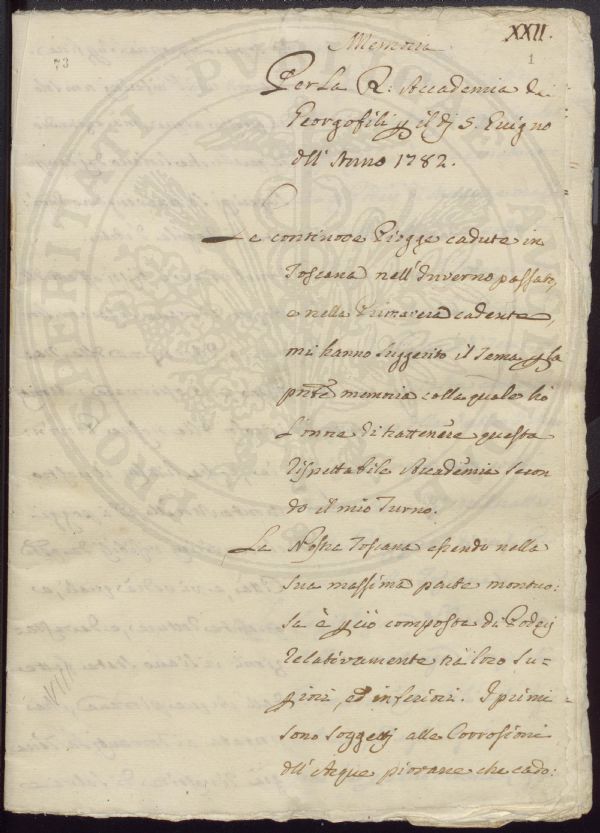 XXII.
Memoria
73
1
Per La R: Accademia de
Georgofili p il dj 5. Giugno
dll' Anno 1782.
Le continove Piogge cadute in
Toscana nell' Inverno passato,
e nella Primavera cadente,
mi hanno suggerito il Tema p la
pnte memoria colla quale ho
L'onore di trattenere questa
rispettabile Accademia secon
do il mio Turno.
La Nostra Toscana essendo nella
sua massima parte montuo:
sa è p ciò composta di Poderj
relativamente trà loro su-
piori, ed inferiori. I primi
sono soggettj alle Corrosioni
dll' Acque piovane che cado:
VIII
PROSPERITATI PUBLICAE AUGENDAE